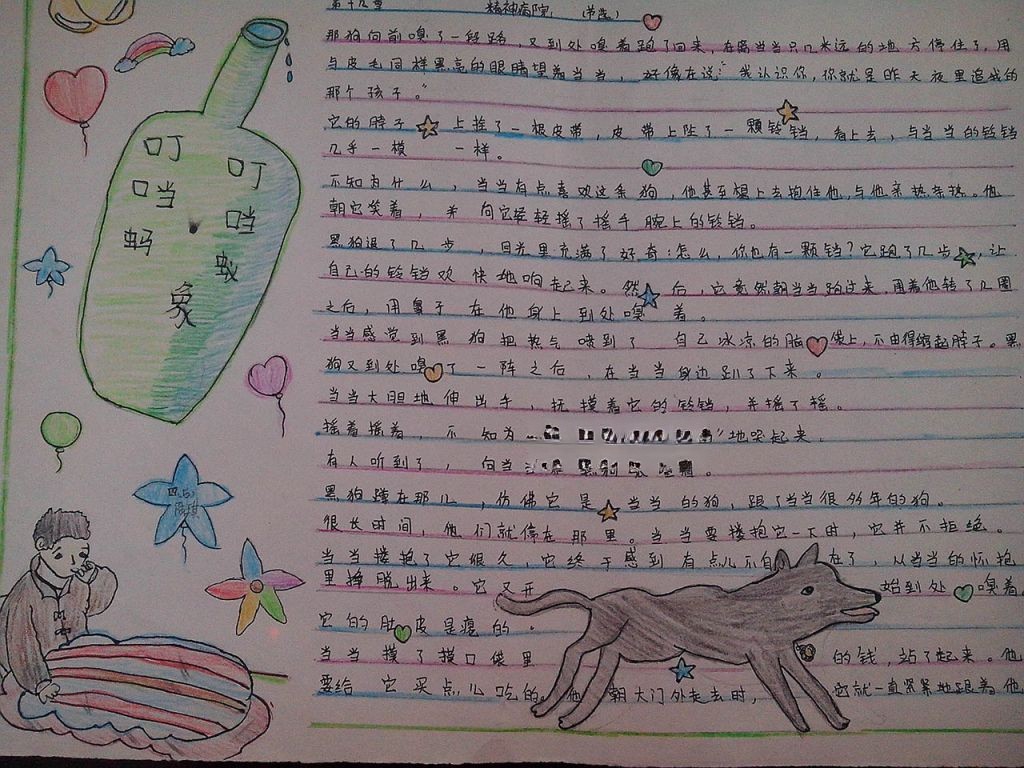 第十九章 精神病院 (节选)
那狗向前嗅了一段路，又到处嗅着跑了回来，在离当当只几米远的地方停住了，用
与皮毛同样黑亮的眼睛望着当当，好像在说：“我认识你，你就是昨天夜里追我的
那个孩子。”
它的脖子上拴了一根皮带，皮带上坠了一颗铃铛，看上去，与当当的铃铛
几乎一模一样。
不知为什么，当当有点喜欢这条狗，他甚至想上去抱住他，与他亲热亲热。他
朝它笑着，并向它轻轻摇了摇手腕上的铃铛。
黑狗退了几步，目光里充满了好奇：怎么，你也有一颗铛？它跑了几步，让
自己的铃铛欢快地响起来。然后，它竟然朝当当跑过来，围着他转了几圈
之后，用鼻子在他身上到处嗅着。
当当感觉到黑狗把热气喷到了自己冰凉的脑袋上，不由得缩起脖子。黑
狗又到处嗅了一阵之后，在当当身边趴了下来。
当当大胆地伸出手，抚摸着它的铃铛，并摇了摇。
摇着摇着，不知为 ”地哭起来，
有人听到了，向当 。
黑狗蹲在那儿，仿佛它是当当的狗，跟了当当很多年的狗。
很长时间，他们就停在那里。当当要搂抱它一下时，它并不拒绝。
当当搂抱了它很久，它终于感到有点儿不自在了，从当当的怀抱
里挣脱出来。它又开始到处嗅着
它的肚皮是瘪的。
当当摸了摸口袋里的钱，站了起来。他
要给它买点儿吃的。他朝大门外走去时，它就一直紧紧地跟着他
叮当
叮当
蚂蚁
象
四(5)